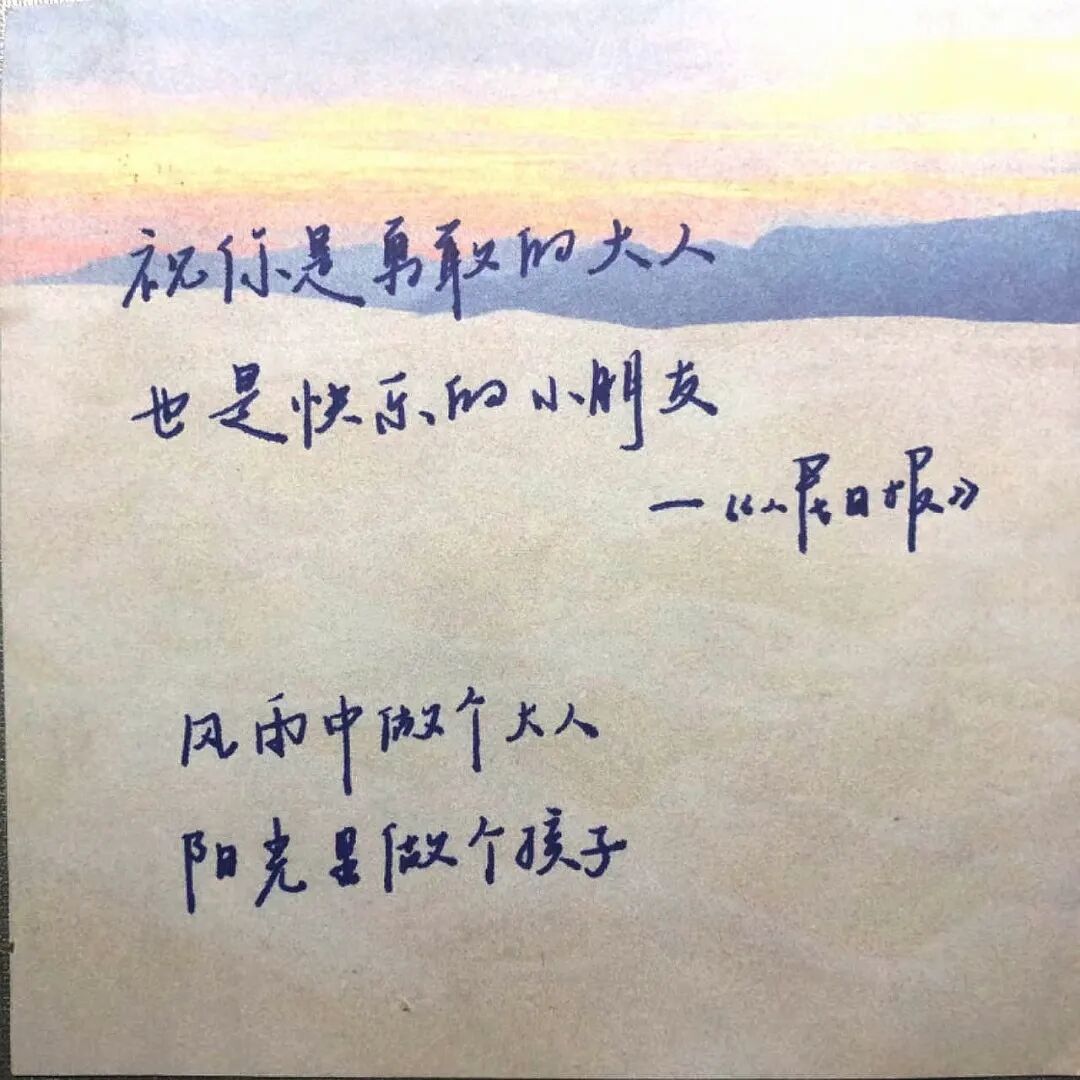 祝你是勇敢的大人
也是快乐的小朋友
—《人民日报》
风雨中做个大人
阳光里做个孩子